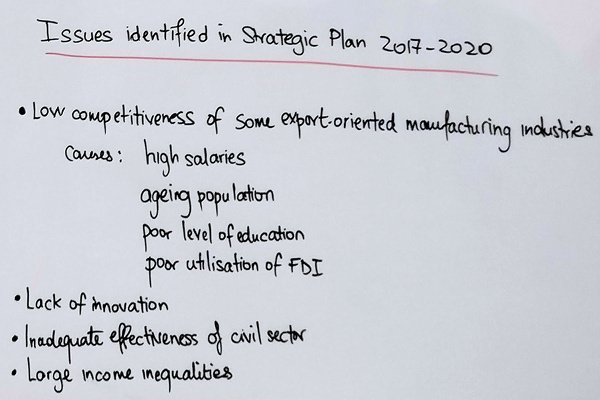 Issues identified in Strategic Plan 2017-2020
• Low competitiveness of some export-oriented manufacturing industries
Causes: high salaries
ageing population
poor level of education
poor utilisation of FDI
• Lack of innovation
• Inadequate effectiveness of civil sector
• Large income inequalities